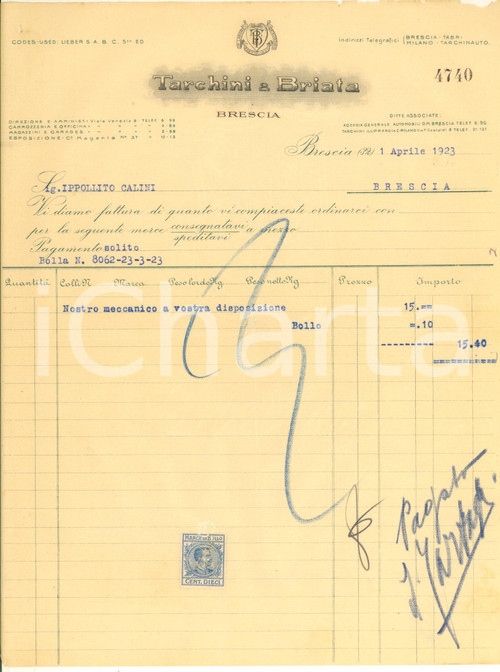 CODES-USED: LIEBER'S A.B.C. 5TH ED
Indirizzi Telegrafici BRESCIA - TABRI
MILANO - TARCHINAUTO.
TB
4740
Tarchini & Briata
BRESCIA
DIREZIONE E AMMINIST. Viale Venezia 8 TELEF. 8-66
CARROZZERIA E OFFICINA " " " " 8-66
MAGAZZINI E GARAGES " " " " 8-66
ESPOSIZIONE - Cº Magenta Nº 27
DITTE ASSOCIATE:
Brescia (12) 1 Aprile 1923
Sg. IPPOLITO CALINI
BRESCIA
Vi diamo fattura di quanto vi compiaceste ordinarci con
per la seguente merce consegnatavi a mezzo
speditavi
Pagamento solito
Bolla N. 8062-23-3-23
Quantità Colli N. Marca Peso lordo Kg Peso netto Kg Prezzo Importo
Nostro meccanico a vostra disposizione 15.==
Bollo =.10
15.40
iCharta
MARCA DA BOLLO
CENT. DIECI
Pagato